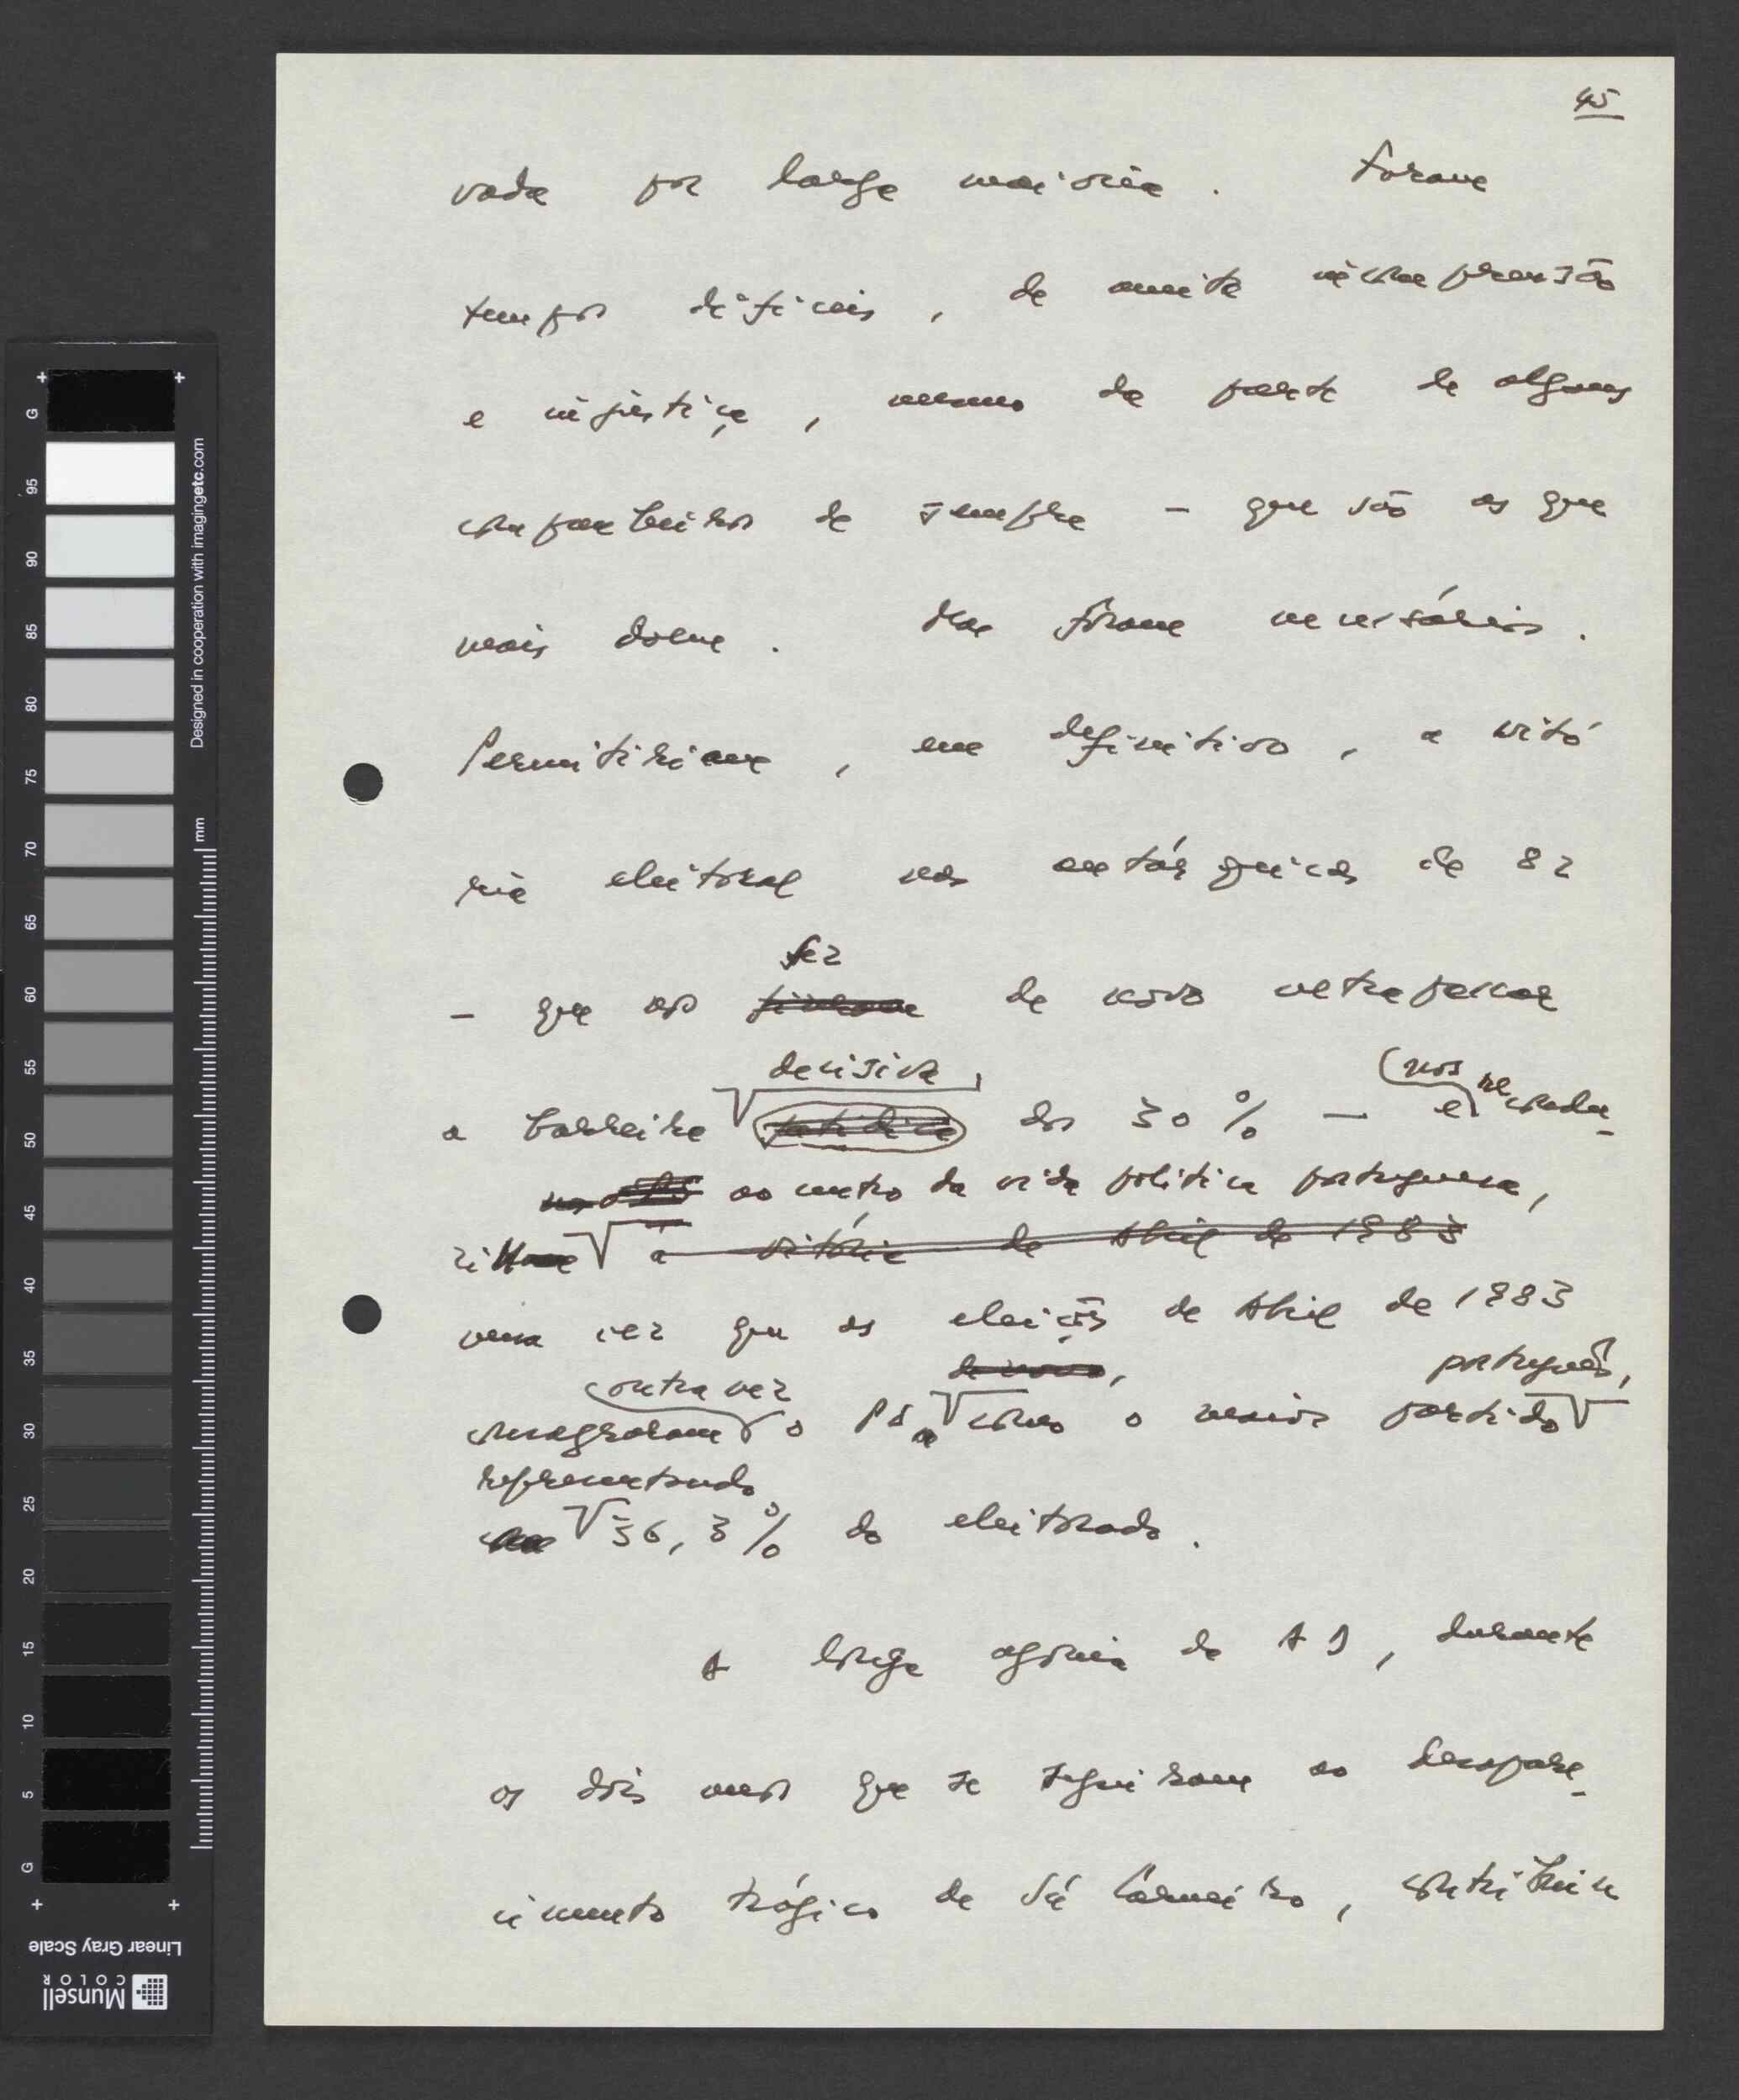 45
vada por larga maioria. Foram
tempos difíceis, de muita incompreensão
e injustiça, mesmo da parte de alguns
companheiros de sempre - que são as que
mais doem. Mas foram necessários.
Permitiriam, em definitivo, a vitó
ria eleitoral nas autárquicas de 82
fez
- que nos fizeram de novo ultrapassar
decisiva,
a barreira fatídica dos 30% - e nos recondu-
ao centro da vida política portuguesa,
ziu a vitória de Abril de 1983
uma vez que as eleições de Abril de 1983
outra vez de novo, português,
consagraram o PS, como o maior partido
representando
36,3% do eleitorado.
A longa agonia da AD, durante
os dois anos que se seguiram ao desapare-
cimento trágico de Sá Carneiro, contribuiu
Designed in cooperation with imagingetc.com
mm
G 95 90 85 80 75 70 65 60 55 50 45 40 35 30 25 20 15 10 5 G
Linear Gray Scale
Munsell
COLOR